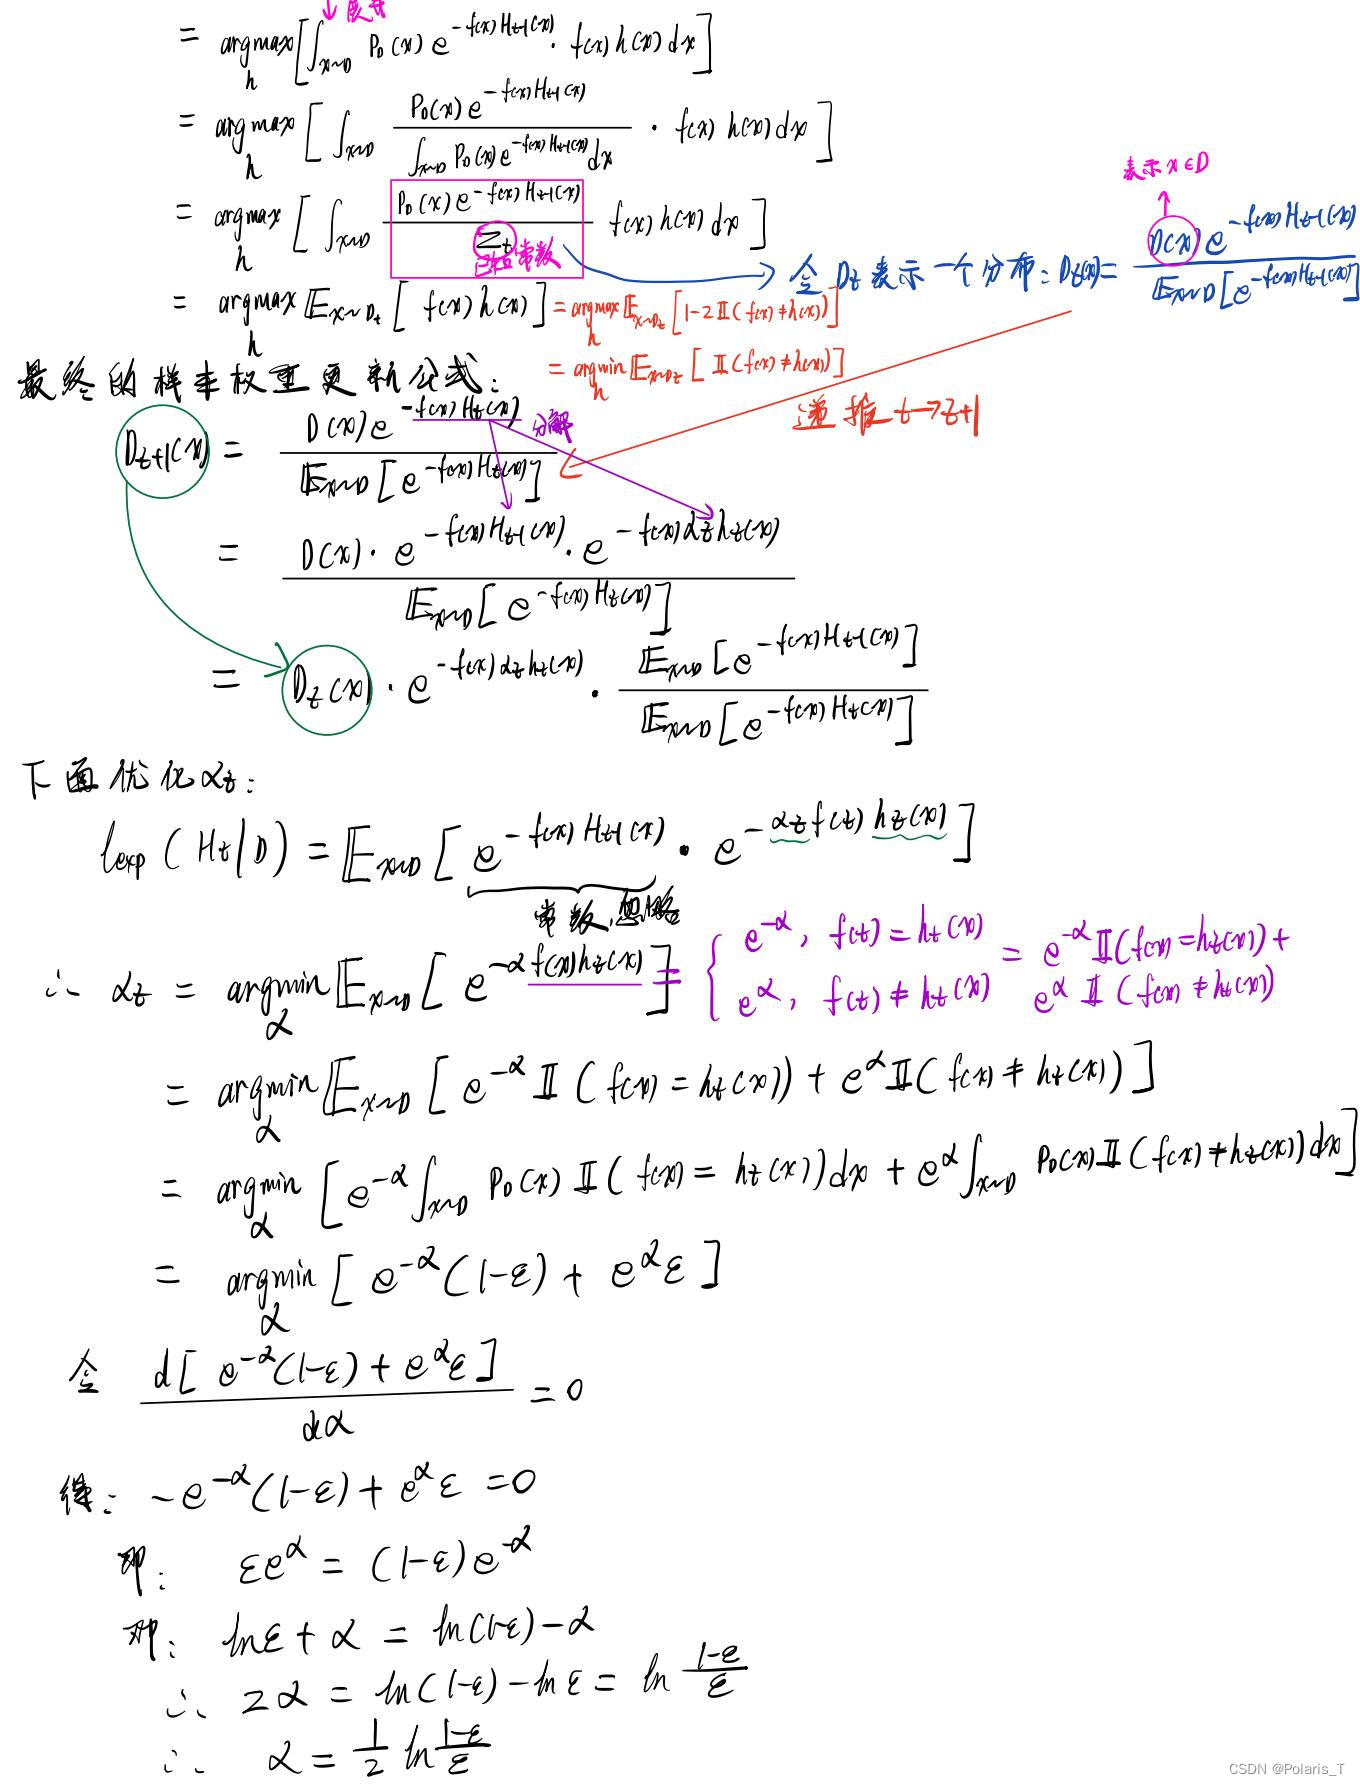 ↓展开
= argmax_h [∫_{x~D} P_D(x) e^{-f(x)H_{t-1}(x)} · f(x)h(x)dx]
= argmax_h [∫_{x~D} \frac{P_D(x)e^{-f(x)H_{t-1}(x)}}{∫_{x~D} P_D(x)e^{-f(x)H_{t-1}(x)}dx} · f(x)h(x)dx]
表示x∈D
= argmax_h [∫_{x~D} \frac{P_D(x)e^{-f(x)H_{t-1}(x)}}{Z_t} f(x)h(x)dx]
已知常数
令D_t表示一个分布: D_t(x) = \frac{D(x)e^{-f(x)H_{t-1}(x)}}{𝔼_{x~D}[e^{-f(x)H_{t-1}(x)}]}
= argmax_h 𝔼_{x~D_t}[f(x)h(x)] = argmax_h 𝔼_{x~D_t}[1-2𝕀(f(x)≠h(x))]
= argmin_h 𝔼_{x~D_t}[𝕀(f(x)≠h(x))]
最终的样本权重更新公式:
递推 t→t+1
D_{t+1}(x) = \frac{D(x)e^{-f(x)H_t(x)}}{𝔼_{x~D}[e^{-f(x)H_t(x)}]}
分解
= \frac{D(x)·e^{-f(x)H_{t-1}(x)}·e^{-f(x)α_t h_t(x)}}{𝔼_{x~D}[e^{-f(x)H_t(x)}]}
= D_t(x)·e^{-f(x)α_t h_t(x)} · \frac{𝔼_{x~D}[e^{-f(x)H_{t-1}(x)}]}{𝔼_{x~D}[e^{-f(x)H_t(x)}]}
下面优化α_t:
l_{exp}(H_t|D) = 𝔼_{x~D}[e^{-f(x)H_{t-1}(x)} · e^{-α_t f(t) h_t(x)}]
常数,忽略
∴ α_t = argmin_α 𝔼_{x~D}[e^{-αf(x)h_t(x)}] = { e^{-α}, f(t)=h_t(x) = e^{-α}𝕀(f(x)=h_t(x))+
e^{α}, f(t)≠h_t(x) e^{α}𝕀(f(x)≠h_t(x))
= argmin_α 𝔼_{x~D}[e^{-α}𝕀(f(x)=h_t(x)) + e^{α}𝕀(f(x)≠h_t(x))]
= argmin_α [e^{-α}∫_{x~D} P_D(x)𝕀(f(x)=h_t(x))dx + e^{α}∫_{x~D} P_D(x)𝕀(f(x)≠h_t(x))dx]
= argmin_α [e^{-α}(1-ε) + e^{α}ε]
令 \frac{d[e^{-α}(1-ε)+e^{α}ε]}{dα} = 0
得: -e^{-α}(1-ε)+e^{α}ε = 0
即: εe^{α} = (1-ε)e^{-α}
即: lnε+α = ln(1-ε)-α
∴ 2α = ln(1-ε)-lnε = ln\frac{1-ε}{ε}
∴ α = \frac{1}{2}ln\frac{1-ε}{ε}
CSDN @Polaris_T